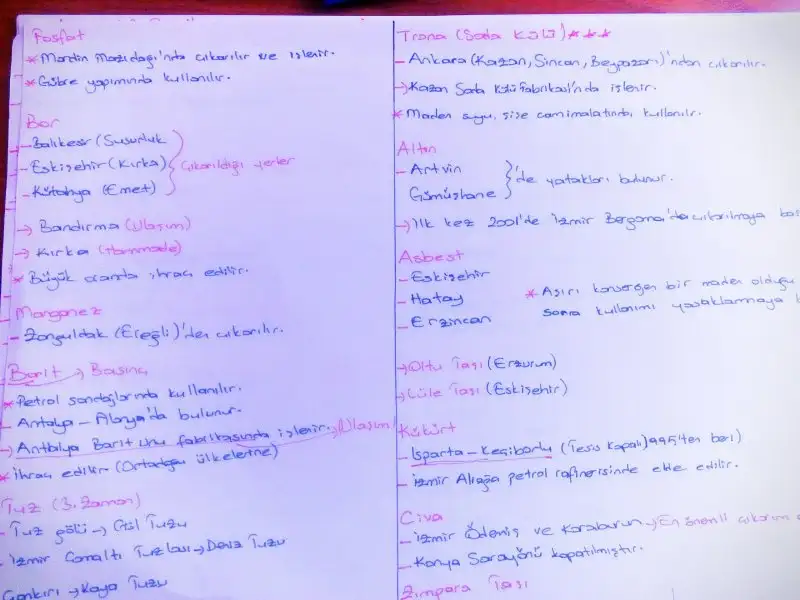 Fosfat
* Mardin Mazıdağı'nda çıkarılır ve işlenir.
* Gübre yapımında kullanılır.
Bor
- Balıkesir (Susurluk
- Eskişehir (Kırka) çıkarıldığı yerler
- Kütahya (Emet)
→ Bandırma (Ulaşım)
→ Kırka (Hammade)
* Büyük oranda ihraç edilir.
Manganez
- Zonguldak (Ereğli)'den çıkarılır.
Barit → Basınç
* Petrol sondajlarında kullanılır.
- Antalya - Alanya'da bulunur.
→ Antalya Barit Unu fabrikasında işlenir. → Ulaşım
* ihraç edilir (Ortadoğu ülkelerine)
Tuz (3. Zaman)
- Tuz gölü → Göl Tuzu
- izmir Çamaltı Tuzlası → Deniz Tuzu
Çankırı → Kaya Tuzu
Trona (Soda Külü) ***
- Ankara (Kazan, Sincan, Beypazarı)'ndan çıkarılır.
→ Kazan Soda Külü Fabrikası'nda işlenir.
* Maden suyu, şişe cam imalatında kullanılır.
Altın
- Artvin
Gümüşhane 'de yatakları bulunur.
→ ilk kez 2001'de izmir Bergama'da çıkarılmaya
Asbest
- Eskişehir
- Hatay
- Erzincan
* Aşırı kanserojen bir maden olduğu
sonra kullanımı yasaklanmaya
→ Oltu Taşı (Erzurum)
→ Lüle Taşı (Eskişehir)
Kükürt
- Isparta - Keçiborlu (Tesis Kapalı 1995'ten beri)
- izmir Aliağa petrol rafinerisinde elde edilir.
Civa
- izmir Ödemiş ve Karaburun → En önemli çıkarım
- Konya Sarayönü kapatılmıştır.
Zımpara Taşı